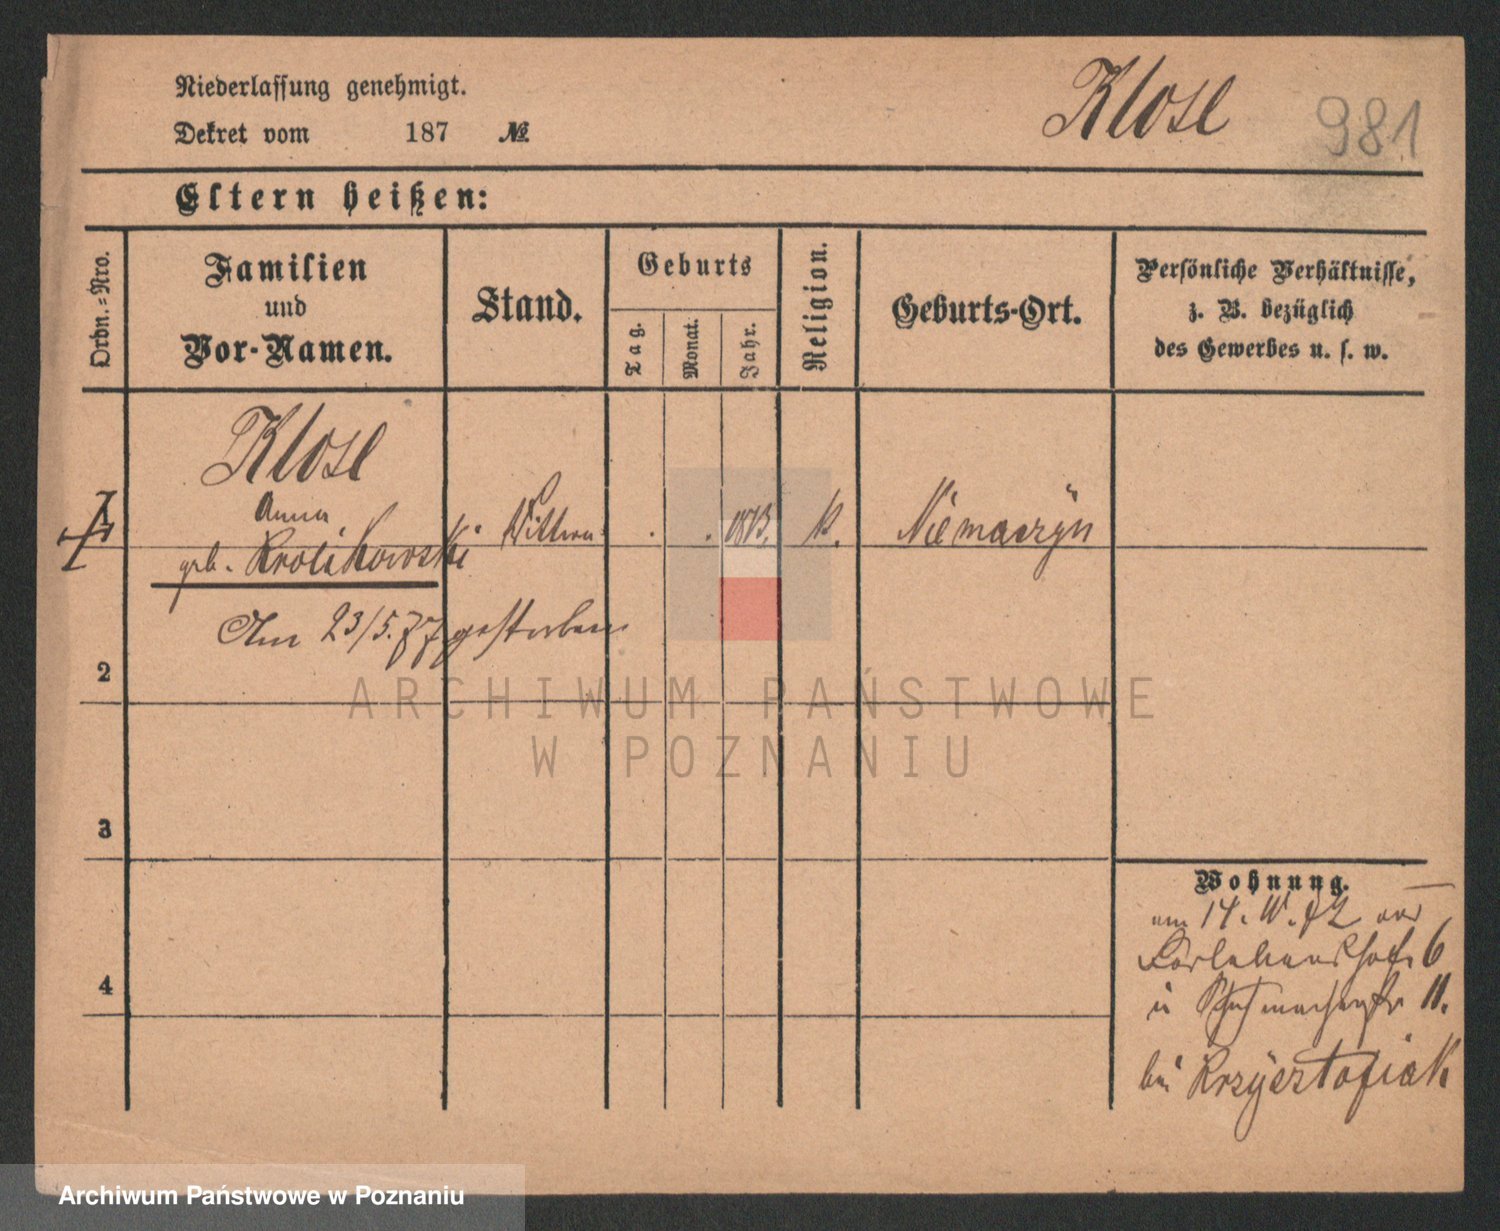 Niederlassung genehmigt.
Dekret vom 187 №
Klose
981
Eltern heißen:
Ordn.-Nro.
Familien
und
Vor-Namen.
Stand.
Geburts
Tag.
Monat.
Jahr.
Religion.
Geburts-Ort.
Persönliche Verhältnisse,
z. B. bezüglich
des Gewerbes u. s. w.
Klose
Anna
geb. Krolikowski
Wittwe
1813.
k.
Niemaczyn
Am 23/5.77 gestorben
2
3
4
Wohnung.
am 14. 72
6
u Schuhmacherstr 11.
bei Krzysztofiak
ARCHIWUM PAŃSTWOWE
W POZNANIU
Archiwum Państwowe w Poznaniu